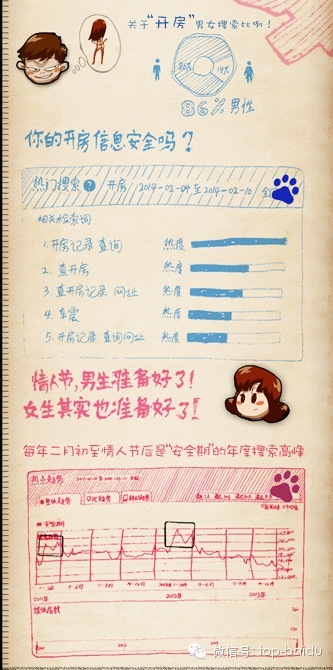 关于"开房"男女搜索比例!
86%
14%
86%男性
你的开房信息安全吗?
热门搜索 ? 开房 2014-02-04至2014-02-10 全
相关检索词
1.开房记录查询 热度
2.查开房 热度
3.查开房记录网址 热度
4.车震 热度
5.开房记录查询网址 热度
情人节,男生准备好了!
女生其实也准备好了!
每年二月初至情人节后是"安全期"的年度搜索高峰
热点趋势
安全期
2011年 2012年 2013年
媒体指数
微信号: top-baidu